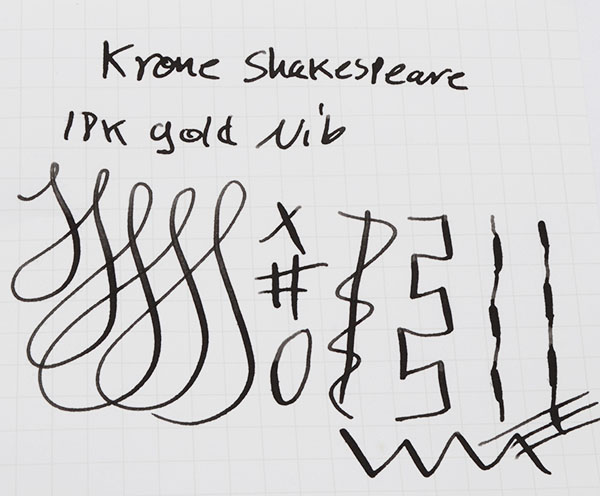 Krone Shakespeare
18K gold Nib
X
#
0